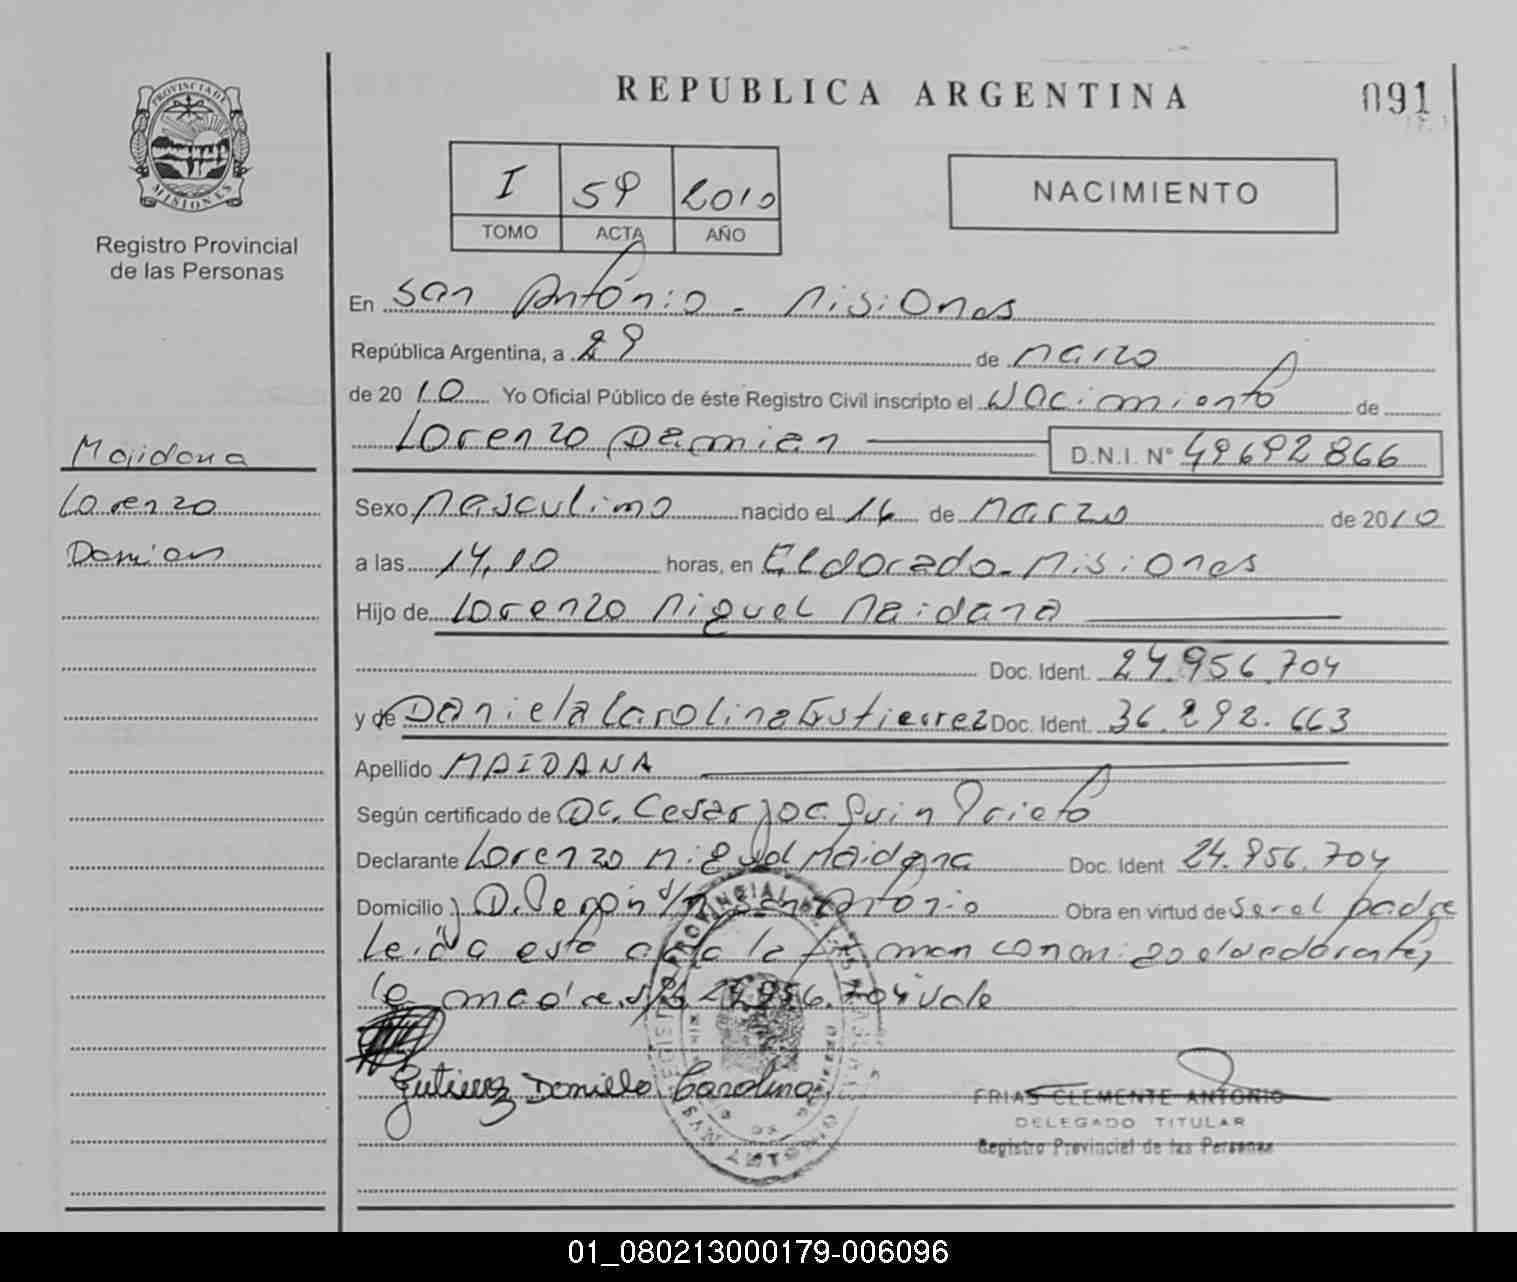 REPUBLICA ARGENTINA
091
PROVINCIA DE
MISIONES
Registro Provincial
de las Personas
I 59 2010
TOMO ACTA AÑO
NACIMIENTO
En San Antonio - Misiones
República Argentina, a 29 de Marzo
de 2010 Yo Oficial Público de éste Registro Civil inscripto el Nacimiento de
Lorenzo Damian D.N.I. N° 49692866
Maidana
Lorenzo
Damian
Sexo Masculino nacido el 16 de Marzo de 2010
a las 14,10 horas, en Eldorado - Misiones
Hijo de Lorenzo Miguel Maidana
Doc. Ident. 24.956.704
y de Daniela Carolina Gutierrez Doc. Ident. 36.292.663
Apellido MAIDANA
Según certificado de Dr. Cesar Joaquin Prieto
Declarante Lorenzo Miguel Maidana Doc. Ident 24.956.704
Domicilio San Antonio Obra en virtud de ser el padre
Leida esta acta la firman conmigo el declarante,
la madre. 24.956.704 vale
Gutierrez Daniela Carolina
FRIAS CLEMENTE ANTONIO
DELEGADO TITULAR
Registro Provincial de las Personas
01_080213000179-006096